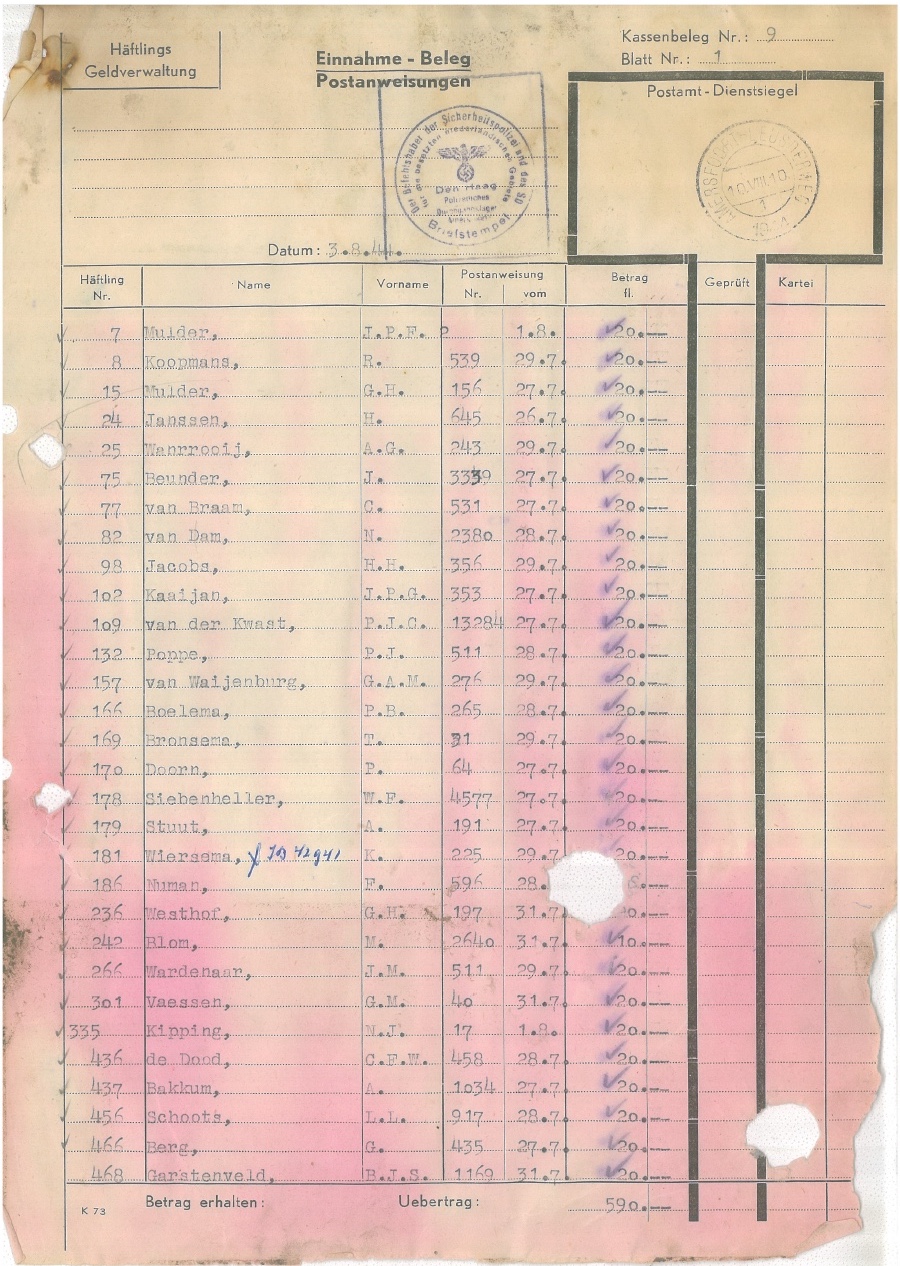 Häftlings
Geldverwaltung
Einnahme - Beleg
Postanweisungen
Kassenbeleg Nr.: 9
Blatt Nr.: 1
Postamt - Dienstsiegel
Der Befehlshaber der Sicherheitspolizei und des SD
für die besetzten niederländischen Gebiete
Den Haag
Polizeiliches
Briefstempel
10.VIII.10
1
Datum: 3.8.44.
Häftling Nr. Name Vorname Postanweisung Nr. vom Betrag fl. Geprüft Kartei
7 Mulder, J.P.F. ? 1.8. 20.--
8 Koopmans, R. 539 29.7. 20.--
15 Mulder, G.H. 156 27.7. 20.--
24 Janssen, H. 645 26.7. 20.--
25 Wanrrooij, A.G. 243 29.7. 20.--
75 Beunder, J. 3339 27.7. 20.--
77 van Braam, C. 531 27.7. 20.--
82 van Dam, N. 2380 28.7. 20.--
98 Jacobs, H.H. 356 29.7. 20.--
102 Kaaijan, J.P.G. 353 27.7. 20.--
109 van der Kwast, P.J.C. 13284 27.7. 20.--
132 Poppe, P.J. 511 28.7. 20.--
157 van Waijenburg, G.A.M. 276 29.7. 20.--
166 Boelema, P.B. 265 28.7. 20.--
169 Bronsema, T. 31 29.7. 20.--
170 Doorn, P. 64 27.7. 20.--
178 Siebenheller, W.F. 4577 27.7. 20.--
179 Stuut, A. 191 27.7. 20.--
181 Wiersema, JB 42941 K. 225 29.7. 20.--
186 Numan, F. 596 28. .--
236 Westhof, G.H. 197 31.7. .--
242 Blom, M. 2640 31.7. 10.--
266 Wardenaar, J.M. 511 29.7. 20.--
301 Vaessen, G.M. 40 31.7. 20.--
335 Kipping, N.J. 17 1.8. 20.--
436 de Dood, C.F.W. 458 28.7. 20.--
437 Bakkum, A. 1034 27.7. 20.--
456 Schoots, L.L. 917 28.7. 20.--
466 Berg, G. 435 27.7. 20.--
468 Garstenveld, B.J.S. 1169 31.7. 20.--
K 73 Betrag erhalten: Uebertrag: 590.--